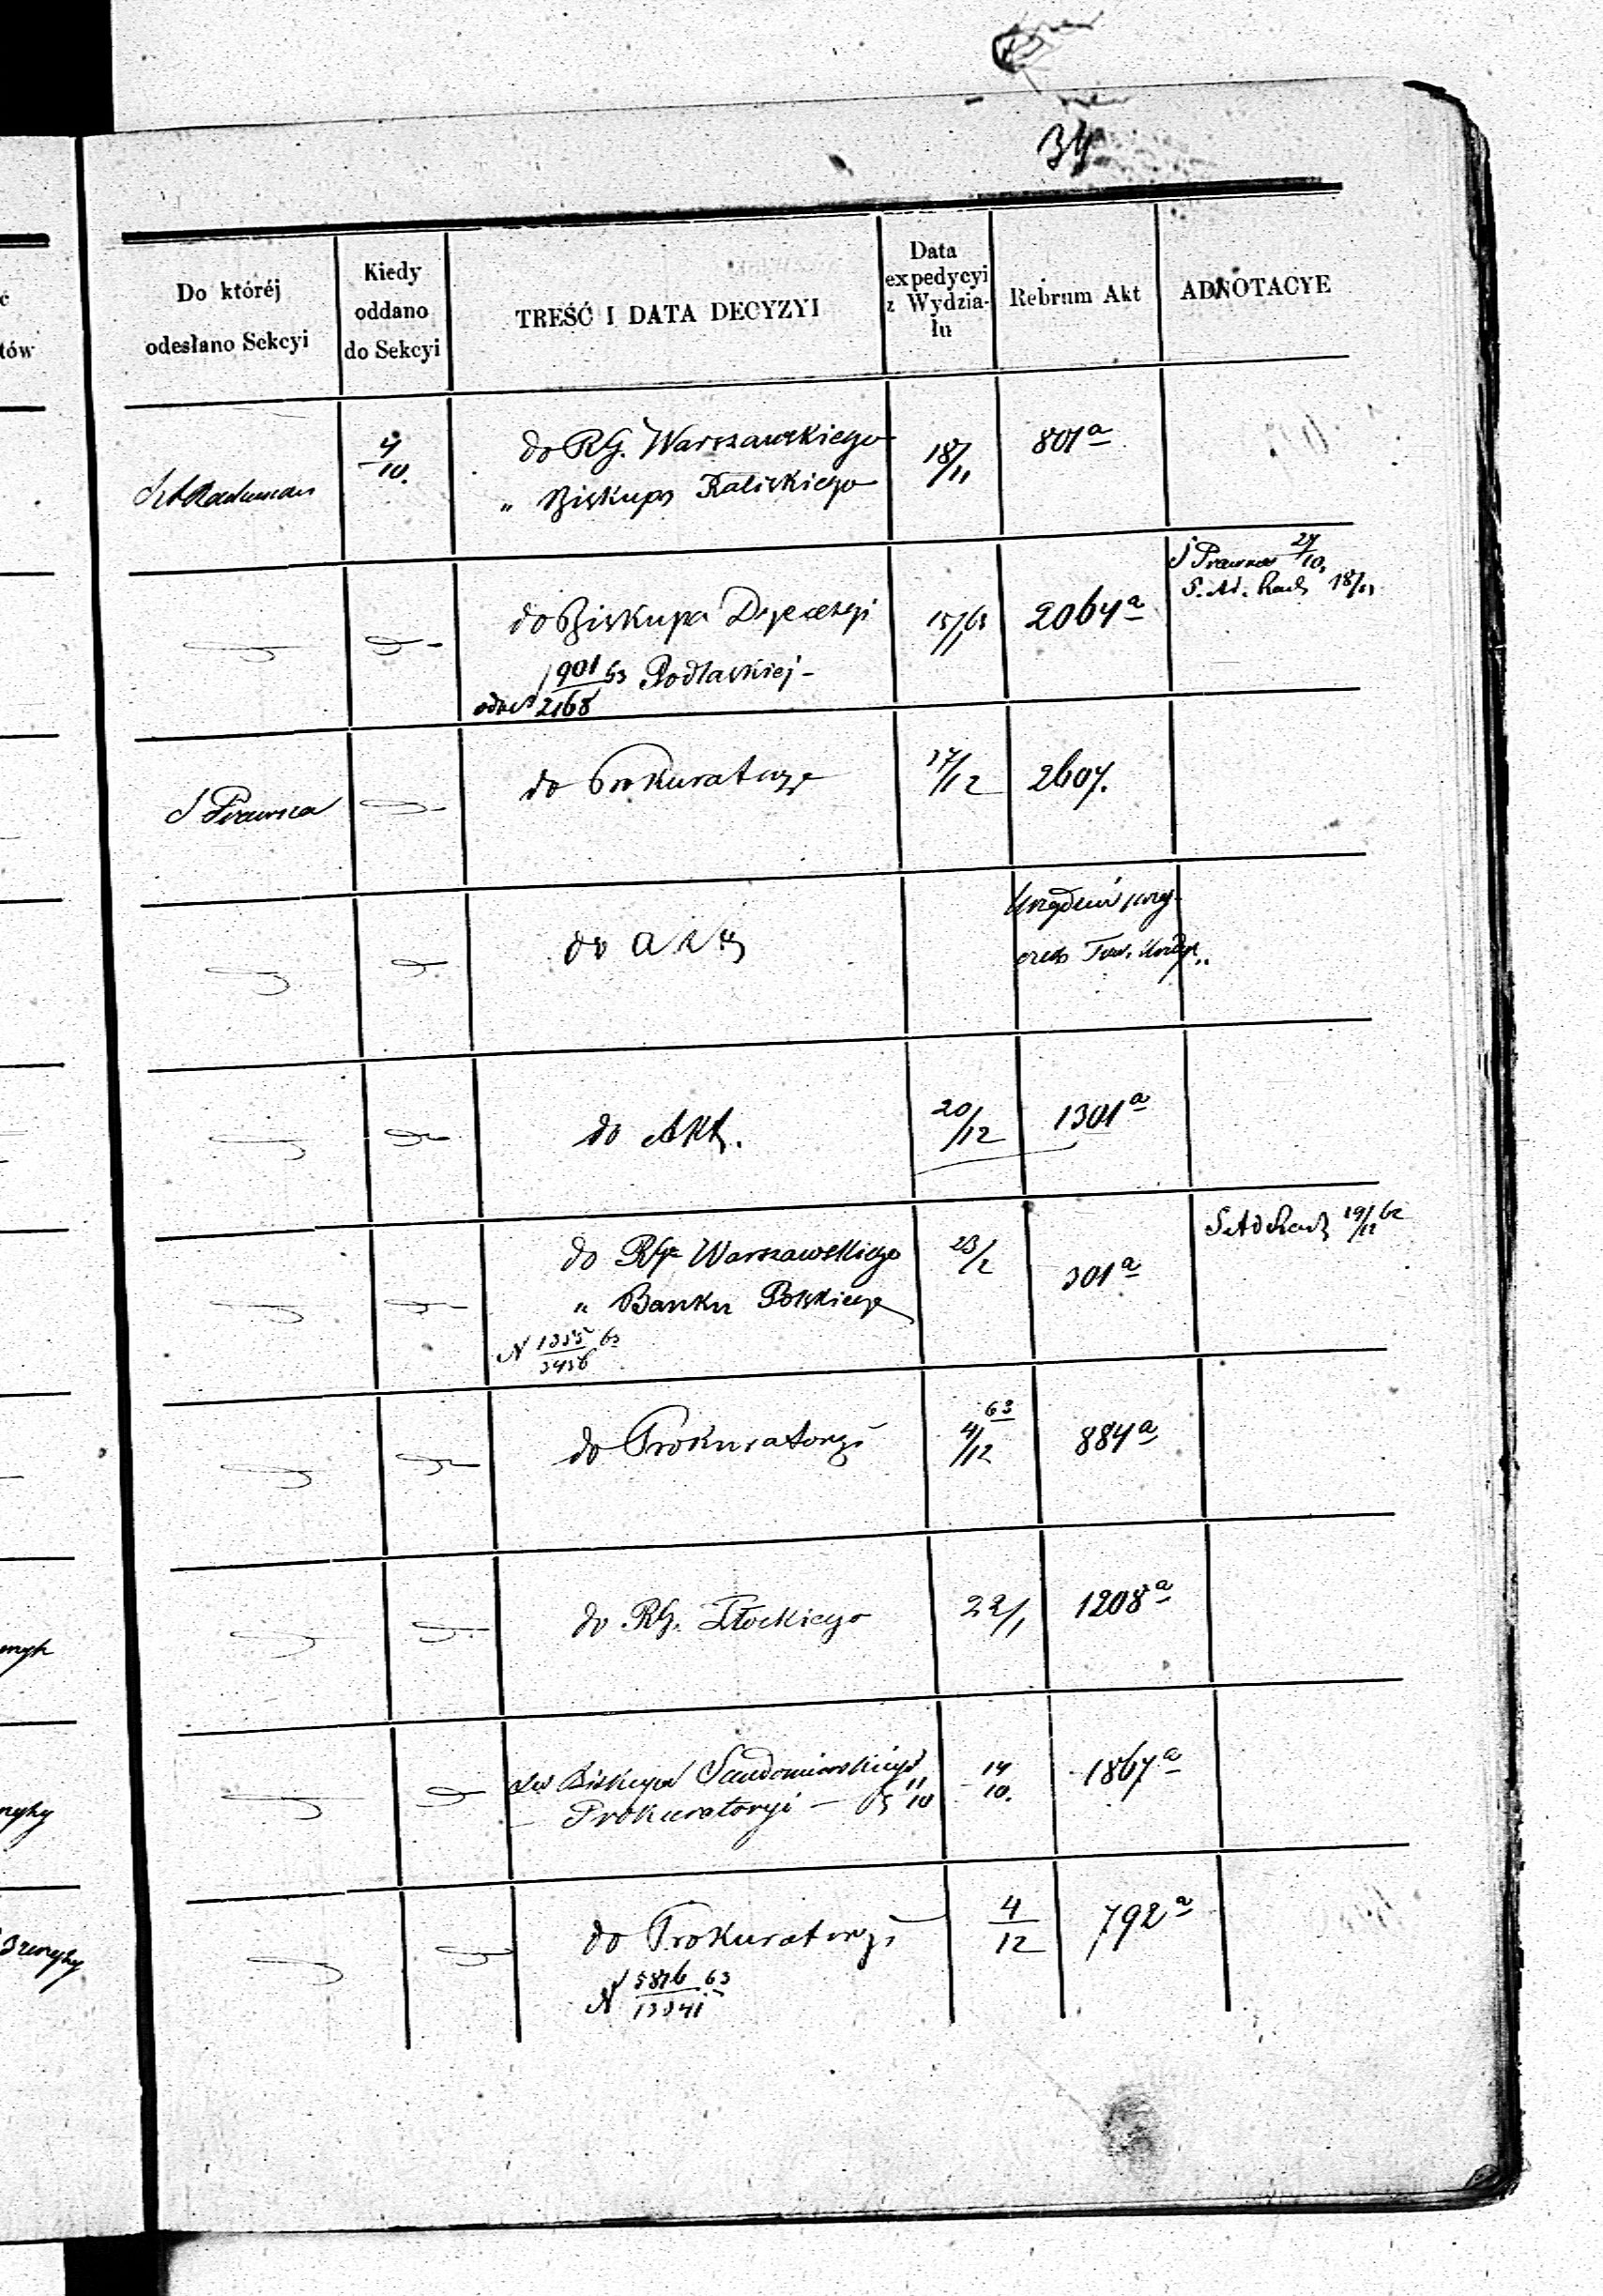 34
ć
tów
Do któréj
odesłano Sekcyi
Kiedy
oddano
do Sekcyi
TREŚĆ I DATA DECYZYI
Data
expedycyi
z Wydzia-
łu
Rebrum Akt
ADNOTACYE
4/10.
do RG. Warszawskiego
„ Biskupa Kaliskiego
18/11
801a
do Biskupa Dyecezyi
901/2168 63 Podlaskiej -
15/1 63
2064a
S Prawna 24/10.
S. Ad. Rach 18/11
S Prawna
do Prokuratorye
17/12
2607.
do akt
Urzędni przy
Tow. Kredyt.
do Akt.
20/12
1301a
do RG Warszawskiego
„ Banku Polskiego
N 1355/3456 63
23/2
301a
S Ad Rach 19/12 62
do Prokuratoryi
63
4/12
884a
do RG. Płockiego
22/1
1208a
do Biskupa Sandomierskiego
- Prokuratoryi - 11/10
14/10.
1867a
do Prokuratoryi
N 5876/13341 63
4/12
792a